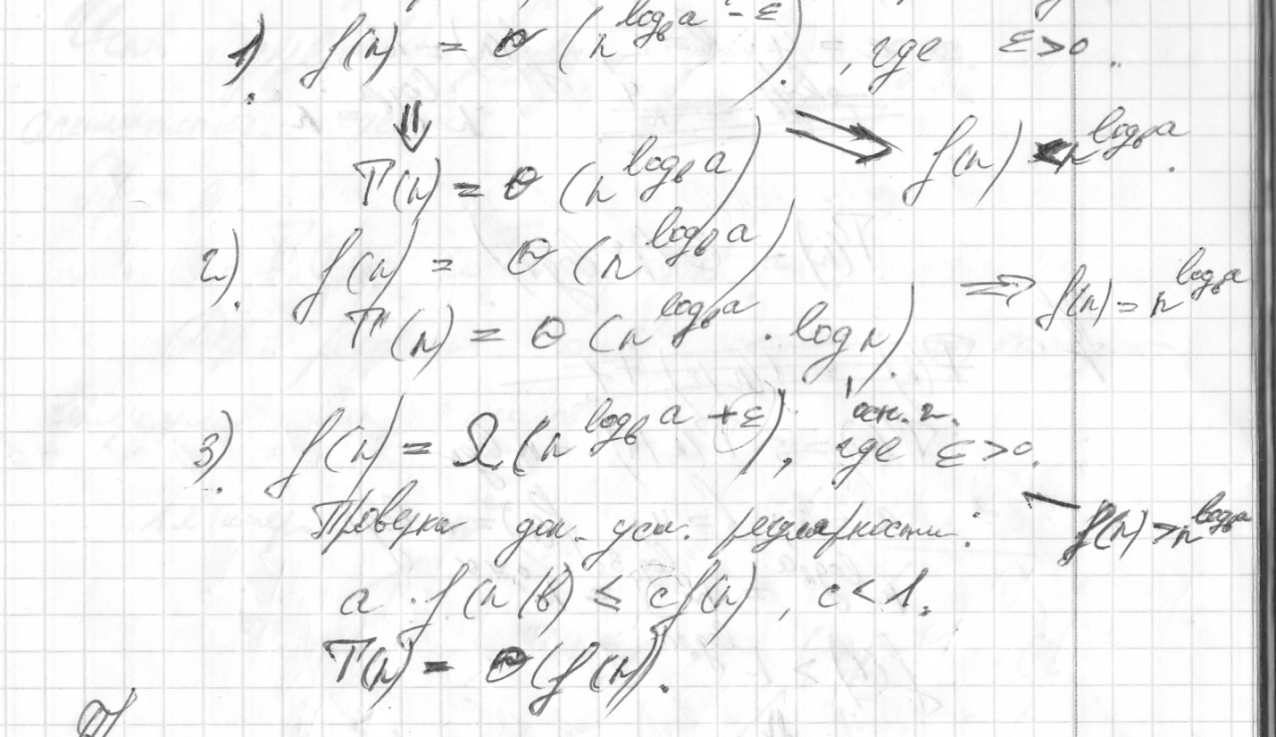 1) f(n) = Θ (n^{log_b a - ε}), где ε > 0.
⇓
⇒ f(n) < n^{log_b a}.
T(n) = Θ (n^{log_b a})
2). f(n) = Θ (n^{log_b a})
⇒ f(n) = n^{log_b a}
T(n) = Θ (n^{log_b a} · log n).
осн. 2.
3). f(n) = Ω (n^{log_b a + ε}), где ε > 0.
← f(n) > n^{log_b a}
Проверка доп. усл. регулярности:
a · f(n/b) ≤ c f(n), c < 1.
T(n) = Θ(f(n)).